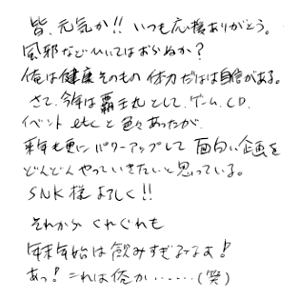 皆、元気か!! いつも応援ありがとう。
風邪などひいてはおらぬか?
俺は健康そのもの 体力だけは自信がある。
さて、今年は覇王丸として、ゲーム、CD、
イベント etc と色々あったが、
来年も更に パワーアップして 面白い企画を
どんどんやっていきたいと思っている。
SNK様 よろしく!!
それから くれぐれも
年末年始は飲みすぎるなよ!
あっ! これは俺か……(笑)